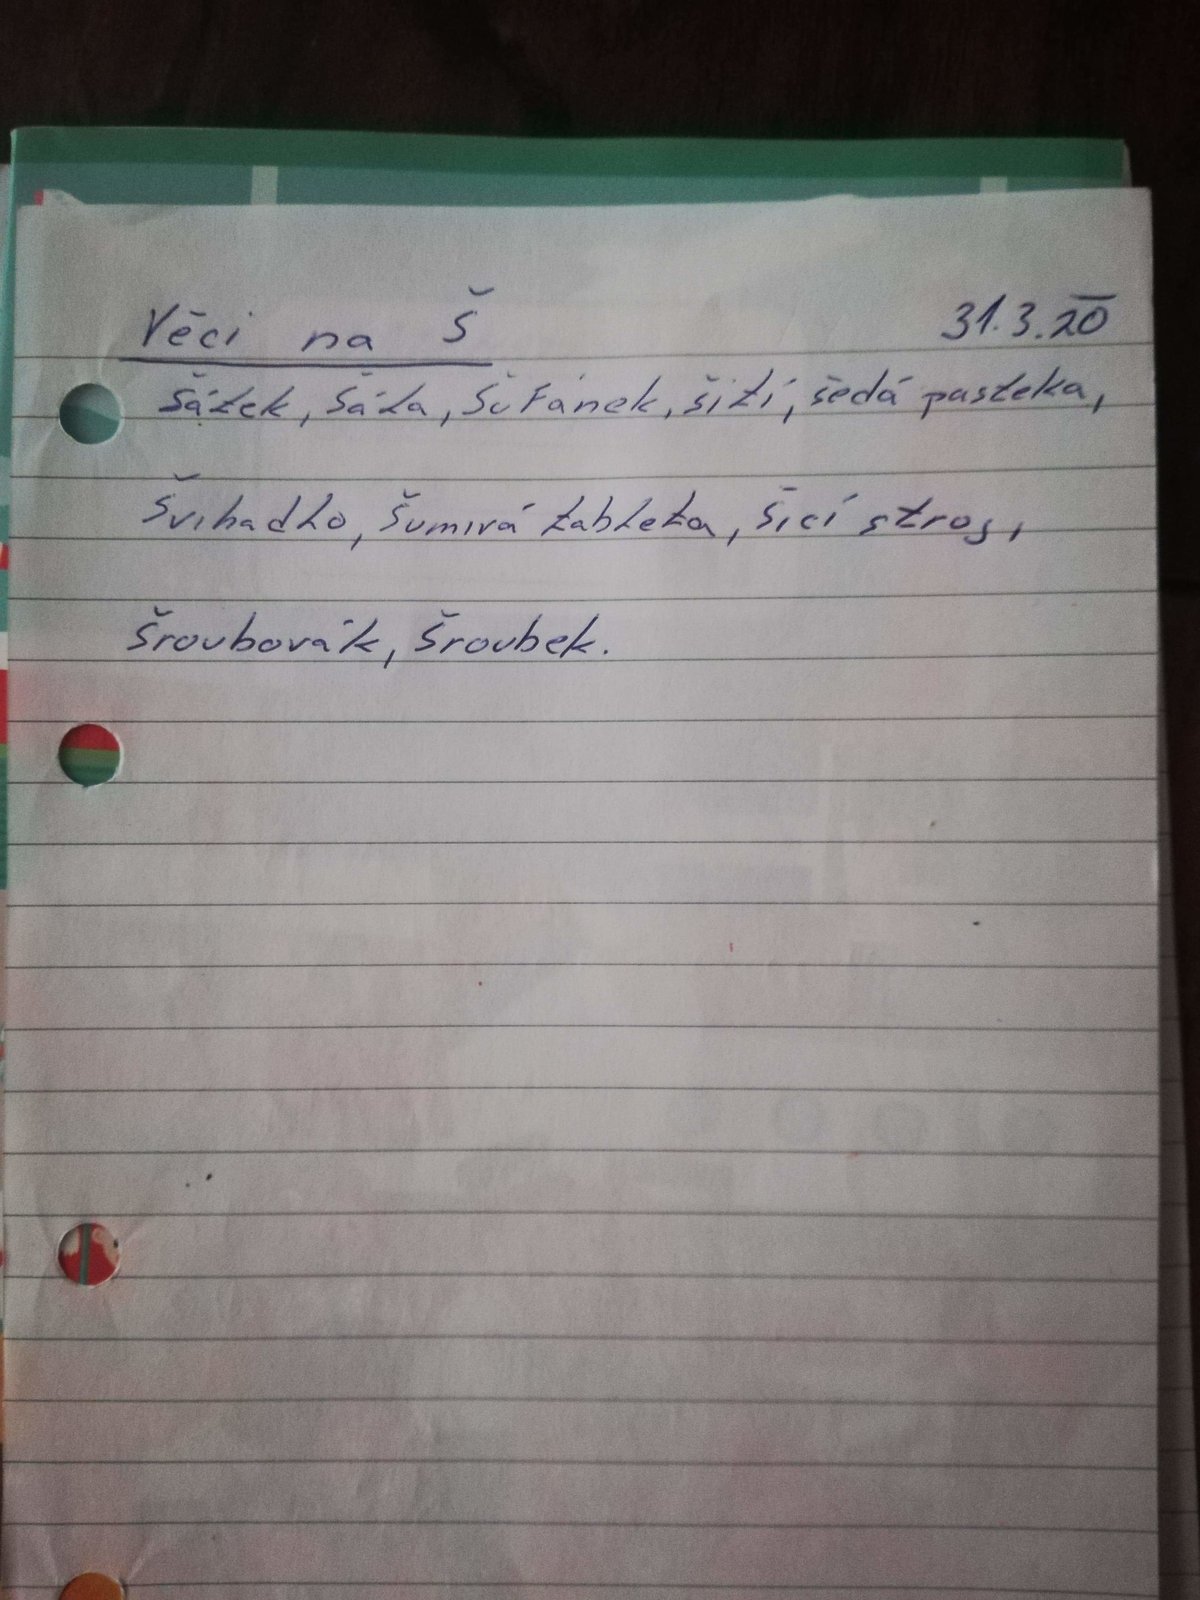 Věci na Š 31.3.20
Šátek, šála, šuřánek, šití, šedá pastelka,
Švihadlo, šumivá tableta, šicí stroj,
Šroubovák, šroubek.